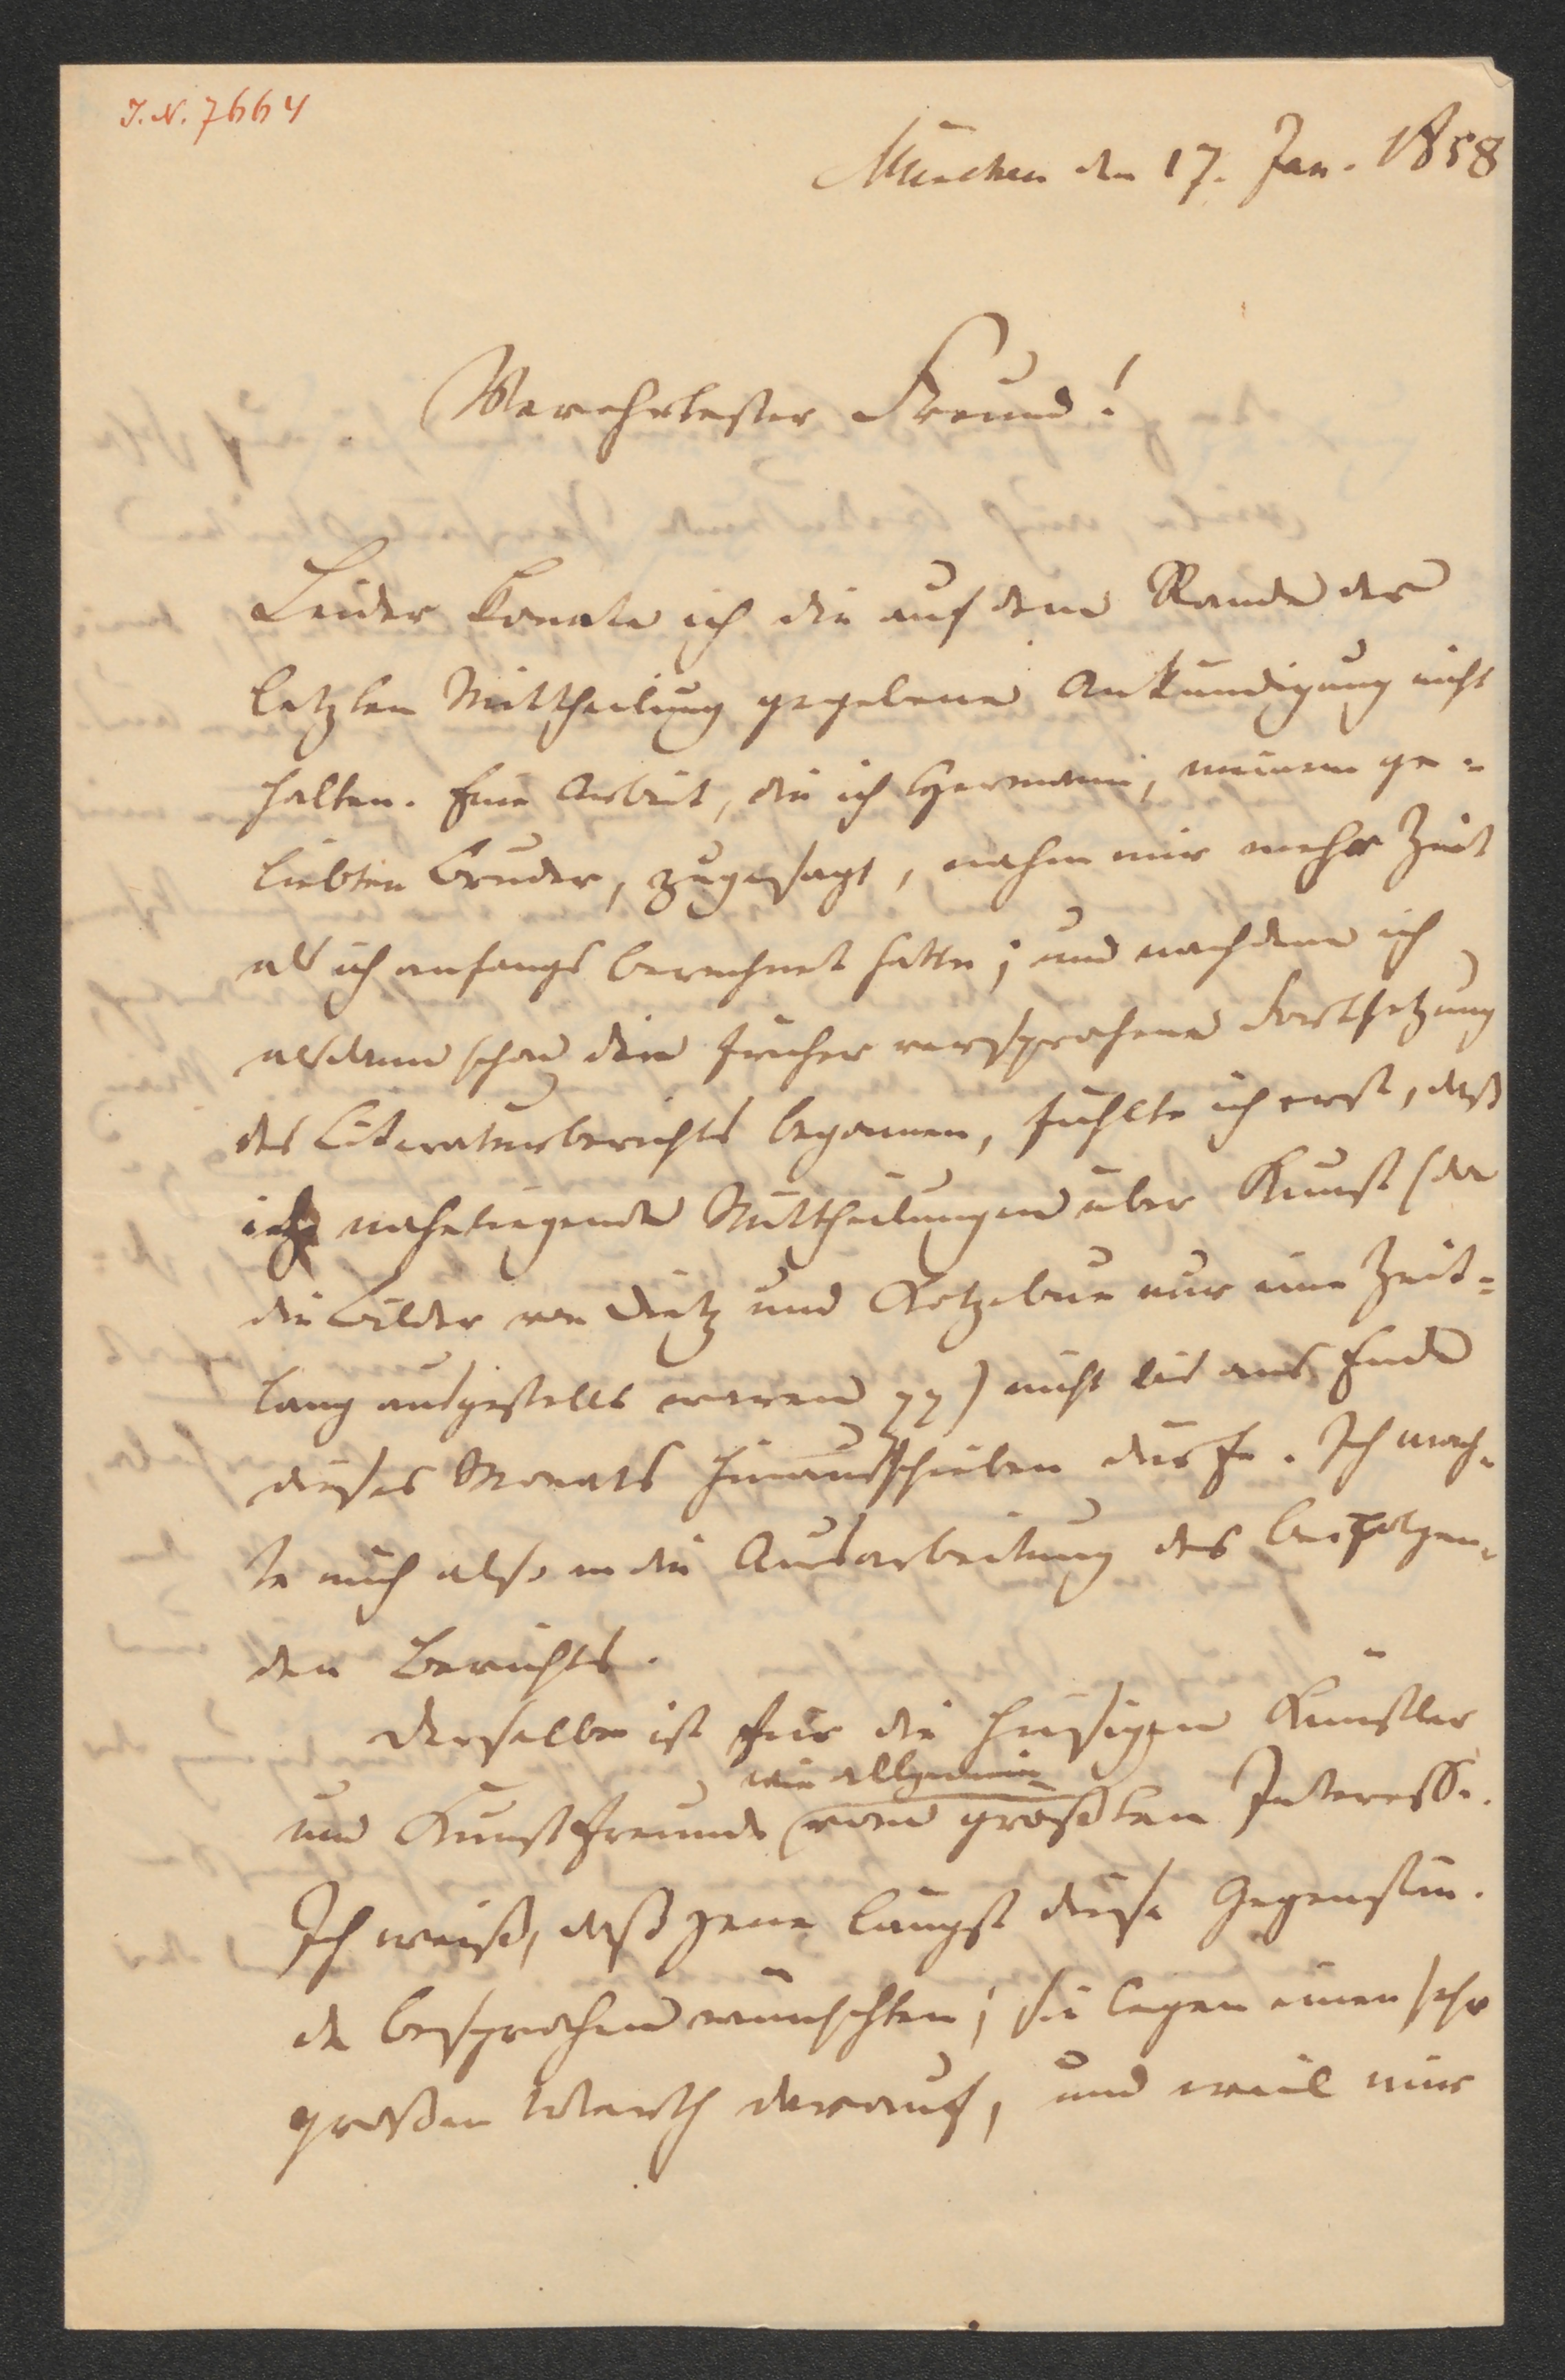 I. N. 7664
München den 17. Jan. 1858
Verehrtester Freund!
Leider konnte ich die auf dem Rande der
letzten Mittheilung gegebene Ankündigung nicht
halten. Eine Arbeit, die ich Hermann, meinem ge-
liebten Bruder, zugesagt, nahm mir mehr Zeit
als ich anfangs berechnet hatte; und nachdem ich
alsdann schon die früher versprochene Fortsetzung
des Literaturberichts begonnen, fühlte ich erst, daß
ich naheliegende Mittheilungen über Kunst (da
die Bilder von Dietz und Kotzebue nur eine Zeit=
lang ausgestellt waren pp) nicht bis ans Ende
dieses Monats hinausschieben dürfe. Ich mach-
te mich also an die Ausarbeitung des beifolgen-
den Berichts.
Derselbe ist für die hiesigen Künstler
wie allgemein
und Kunstfreunde vom größten Interesse.
Ich weiß, daß jene längst diese Gegenstän-
de besprochen wünschten; sie legen einen sehr
großen Werth darauf, und weil mir